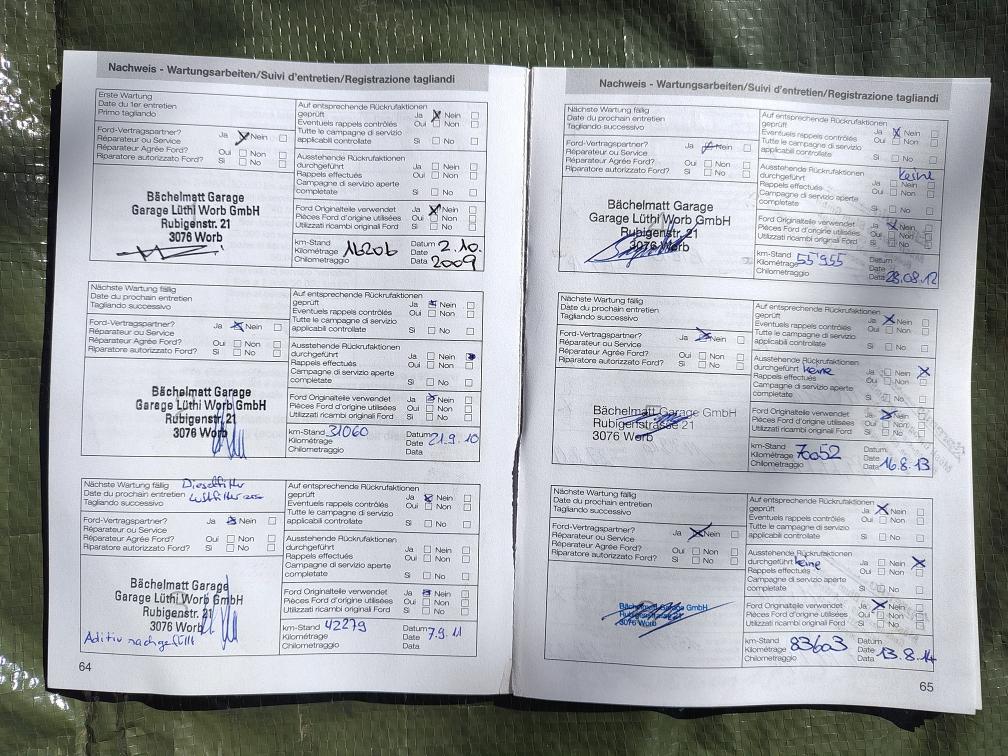 Nachweis - Wartungsarbeiten/Suivi d'entretien/Registrazione tagliandi
Erste Wartung
Date du 1er entretien
Primo tagliando
Ford-Vertragspartner? Ja Nein
Réparateur ou Service
Réparateur Agrée Ford? Oui Non
Riparatore autorizzato Ford? Si No
Bächelmatt Garage
Garage Lüthi Worb GmbH
Rubigenstr. 21
3076 Worb
Auf entsprechende Rückrufaktionen
geprüft Ja Nein
Eventuels rappels contrôlés Oui Non
Tutte le campagne di servizio
applicabili controllate Si No
Ausstehende Rückrufaktionen
durchgeführt Ja Nein
Rappels effectués Oui Non
Campagne di servizio aperte
completate Si No
Ford Originalteile verwendet Ja Nein
Pièces Ford d'origine utilisées Oui Non
Utilizzati ricambi originali Ford Si No
km-Stand
Kilométrage 16206
Chilometraggio
Datum 2.10.
Date
Data 2009
Nächste Wartung fällig
Date du prochain entretien
Tagliando successivo
Ford-Vertragspartner? Ja Nein
Réparateur ou Service
Réparateur Agrée Ford? Oui Non
Riparatore autorizzato Ford? Si No
Bächelmatt Garage
Garage Lüthi Worb GmbH
Rubigenstr. 21
3076 Worb
Auf entsprechende Rückrufaktionen
geprüft Ja Nein
Eventuels rappels contrôlés Oui Non
Tutte le campagne di servizio
applicabili controllate Si No
Ausstehende Rückrufaktionen
durchgeführt Ja Nein
Rappels effectués Oui Non
Campagne di servizio aperte
completate Si No
Ford Originalteile verwendet Ja Nein
Pièces Ford d'origine utilisées Oui Non
Utilizzati ricambi originali Ford Si No
km-Stand 31060
Kilométrage
Chilometraggio
Datum
Date 21.9.10
Data
Nächste Wartung fällig Dieselfilter
Date du prochain entretien Luftfilter
Tagliando successivo
Ford-Vertragspartner? Ja Nein
Réparateur ou Service
Réparateur Agrée Ford? Oui Non
Riparatore autorizzato Ford? Si No
Bächelmatt Garage
Garage Lüthi Worb GmbH
Rubigenstr. 21
3076 Worb
Aditiv nachgefüllt
Auf entsprechende Rückrufaktionen
geprüft Ja Nein
Eventuels rappels contrôlés Oui Non
Tutte le campagne di servizio
applicabili controllate Si No
Ausstehende Rückrufaktionen
durchgeführt Ja Nein
Rappels effectués Oui Non
Campagne di servizio aperte
completate Si No
Ford Originalteile verwendet Ja Nein
Pièces Ford d'origine utilisées Oui Non
Utilizzati ricambi originali Ford Si No
km-Stand 42279
Kilométrage
Chilometraggio
Datum
Date 7.9.11
Data
64
Nachweis - Wartungsarbeiten/Suivi d'entretien/Registrazione tagliandi
Nächste Wartung fällig
Date du prochain entretien
Tagliando successivo
Ford-Vertragspartner? Ja Nein
Réparateur ou Service
Réparateur Agrée Ford? Oui Non
Riparatore autorizzato Ford? Si No
Bächelmatt Garage
Garage Lüthi Worb GmbH
Rubigenstr. 21
3076 Worb
Auf entsprechende Rückrufaktionen
geprüft Ja Nein
Eventuels rappels contrôlés Oui Non
Tutte le campagne di servizio
applicabili controllate Si No
Ausstehende Rückrufaktionen keine
durchgeführt Ja Nein
Rappels effectués Oui Non
Campagne di servizio aperte
completate Si No
Ford Originalteile verwendet Ja Nein
Pièces Ford d'origine utilisées Oui Non
Utilizzati ricambi originali Ford Si No
km-Stand
Kilométrage 55955
Chilometraggio
Datum
Date
Data 28.08.12
Nächste Wartung fällig
Date du prochain entretien
Tagliando successivo
Ford-Vertragspartner? Ja Nein
Réparateur ou Service
Réparateur Agrée Ford? Oui Non
Riparatore autorizzato Ford? Si No
Bächelmatt Garage GmbH
Rubigenstrasse 21
3076 Worb
Auf entsprechende Rückrufaktionen
geprüft Ja Nein
Eventuels rappels contrôlés Oui Non
Tutte le campagne di servizio
applicabili controllate Si No
Ausstehende Rückrufaktionen
durchgeführt keine Ja Nein
Rappels effectués Oui Non
Campagne di servizio aperte
completate Si No
Ford Originalteile verwendet Ja Nein
Pièces Ford d'origine utilisées Oui Non
Utilizzati ricambi originali Ford Si No
km-Stand
Kilométrage 70052
Chilometraggio
Datum
Date
Data 16.8.13
Nächste Wartung fällig
Date du prochain entretien
Tagliando successivo
Ford-Vertragspartner? Ja Nein
Réparateur ou Service
Réparateur Agrée Ford? Oui Non
Riparatore autorizzato Ford? Si No
Bächelmatt Garage GmbH
3076 Worb
Auf entsprechende Rückrufaktionen
geprüft Ja Nein
Eventuels rappels contrôlés Oui Non
Tutte le campagne di servizio
applicabili controllate Si No
Ausstehende Rückrufaktionen
durchgeführt keine Ja Nein
Rappels effectués Oui Non
Campagne di servizio aperte
completate Si No
Ford Originalteile verwendet Ja Nein
Pièces Ford d'origine utilisées Oui Non
Utilizzati ricambi originali Ford Si No
km-Stand
Kilométrage 83603
Chilometraggio
Datum
Date
Data 13.8.14
65